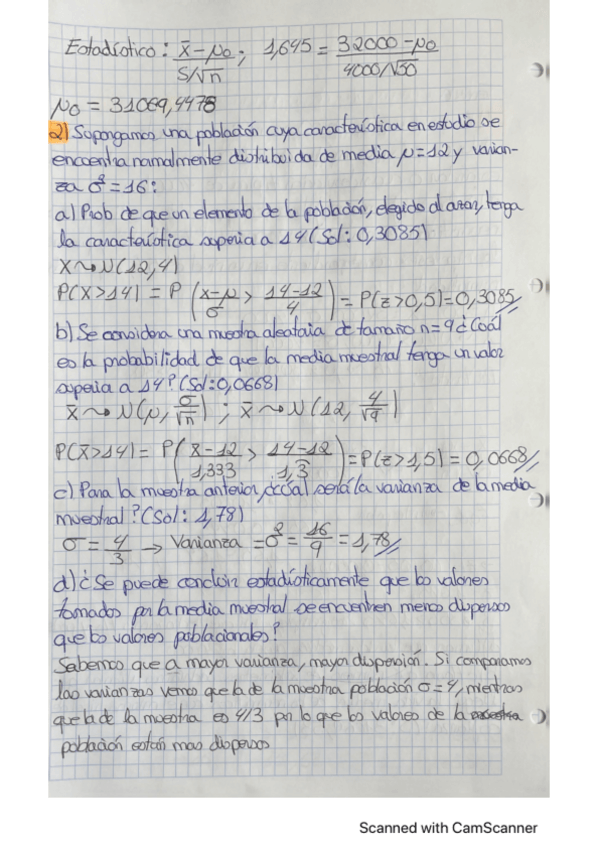 Estadístico: x̄-μ₀ / S/√n ; 1,645 = 32000-μ₀ / 4000/√50
μ₀ = 31069,4478
2) Supongamos una población cuya característica en estudio se
encuentra normalmente distribuida de media μ=12 y varian-
za σ²=16:
a) Prob de que un elemento de la población, elegido al azar, tenga
la característica superior a 14 (Sol: 0,3085)
X~N(12,4)
P(X>14) = P(x-μ / σ > 14-12 / 4) = P(z>0,5) = 0,3085
b) Se considera una muestra aleatoria de tamaño n=9 ¿Cuál
es la probabilidad de que la media muestral tenga un valor
superior a 14? (Sol: 0,0668)
x̄ ~ N(μ, σ/√n) ; x̄ ~ N(12, 4/√9)
P(x̄>14) = P(x̄-12 / 1,333 > 14-12 / 1,3) = P(z>1,5) = 0,0668
c) Para la muestra anterior, ¿cuál será la varianza de la media
muestral? (Sol: 1,78)
σ = 4/3 → Varianza = σ² = 16/9 = 1,78
d) ¿Se puede concluir estadísticamente que los valores
tomados por la media muestral se encuentren menos dispersos
que los valores poblacionales?
Sabemos que a mayor varianza, mayor dispersión. Si comparamos
las varianzas vemos que la de la muestra población σ=4, mientras
que la de la muestra es 4/3 por lo que los valores de la muestra
población están mas dispersos
Scanned with CamScanner